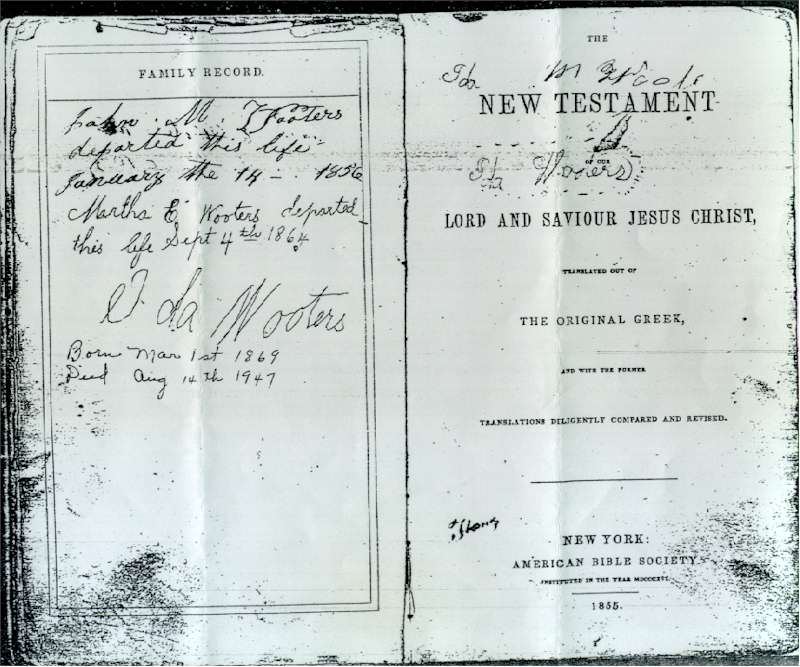 FAMILY RECORD.
John M. Wooters
departed this life
January the 14 - 1856
Martha E Wooters departed
this life Sept 4th 1864
Ida Wooters
Born Mar 1st 1869
Died Aug 14th 1947
THE
Ida M Woot
NEW TESTAMENT
OF OUR
Ida Wooters
LORD AND SAVIOUR JESUS CHRIST,
TRANSLATED OUT OF
THE ORIGINAL GREEK,
AND WITH THE FORMER
TRANSLATIONS DILIGENTLY COMPARED AND REVISED.
NEW YORK:
AMERICAN BIBLE SOCIETY
INSTITUTED IN THE YEAR MDCCCXVI.
1855.